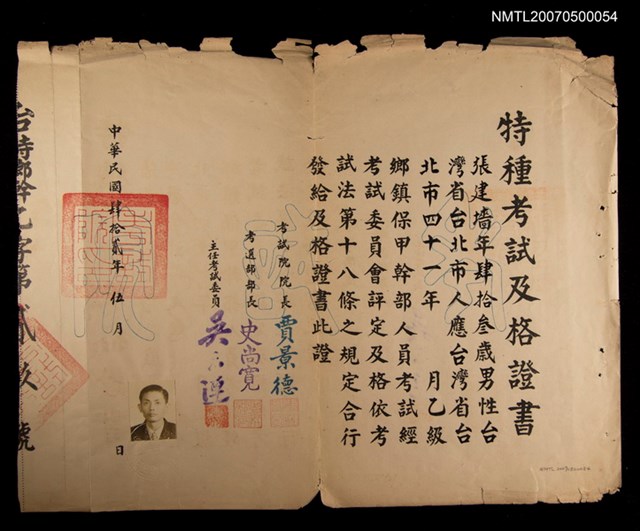 NMTL20070500054
特種考試及格證書
張建墻年肆拾叁歲男性台
灣省台北市人應台灣省台
北市四十一年 月乙級
鄉鎮保甲幹部人員考試經
考試委員會評定及格依考
試法第十八條之規定合行
發給及格證書此證
考試院院長 賈景德
考選部部長 史尚寬
主任考試委員 吳
中華民國肆拾貳年伍月 日
台特鄉幹乙字第貳玖 號